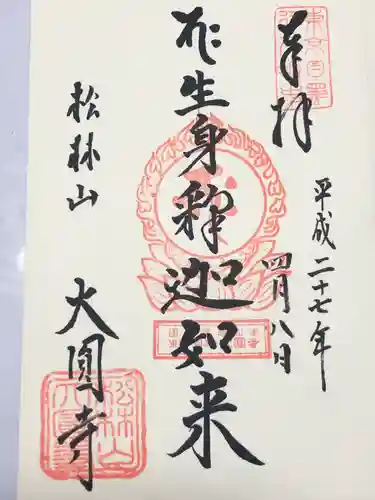 奉拝
平成二十七年
四月八日
生身釈迦如来
松林山
大圓寺
松林山
大圓寺